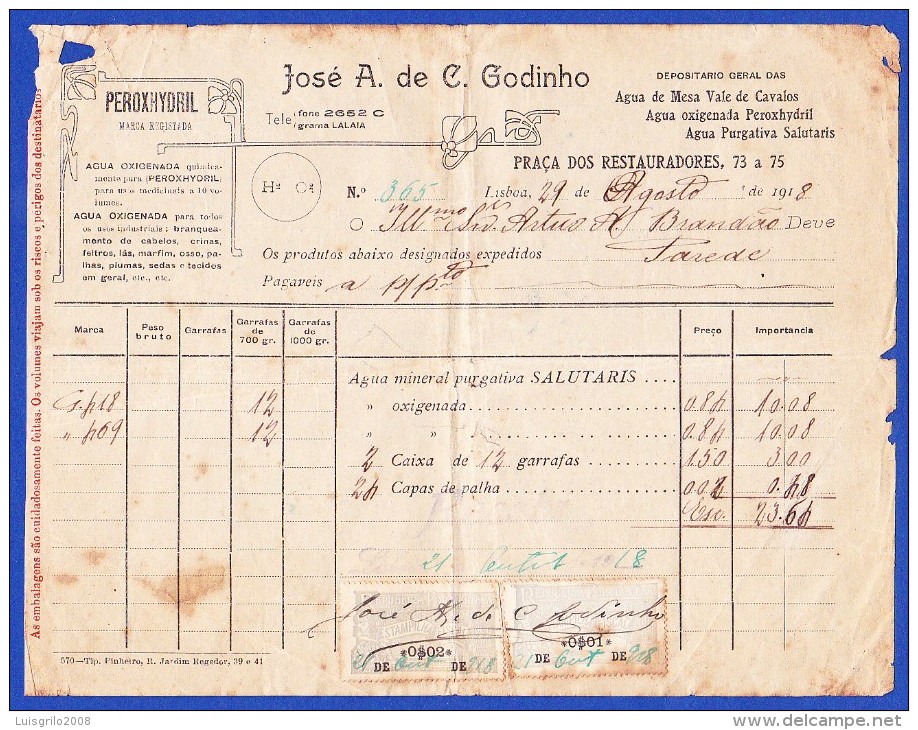 As embalagens são cuidadosamente feitas. Os volumes viajam sob os riscos e perigos dos destinatarios
PEROXHYDRIL
MARCA REGISTADA
AGUA OXIGENADA quimica-
mente para (PEROXHYDRIL)
para usos medicinais a 10 vo-
lumes.
AGUA OXIGENADA para todos
os usos industriais: branquea-
mento de cabelos, crinas,
feltros, lãs, marfim, osso, pa-
lhas, plumas, sedas e tecidos
em geral, etc., etc.
José A. de C. Godinho
Tele fone 2652 C
grama LALAIA
DEPOSITARIO GERAL DAS
Agua de Mesa Vale de Cavalos
Agua oxigenada Peroxhydril
Agua Purgativa Salutaris
PRAÇA DOS RESTAURADORES, 73 a 75
Nº 365 Lisboa, 29 de Agosto de 1918
O Illmo Snr. Artur A. Brandão Deve
Os produtos abaixo designados expedidos Parede
Pagaveis a p/pto
Marca Peso bruto Garrafas Garrafas de 700 gr. Garrafas de 1000 gr. Preço Importancia
Agua mineral purgativa SALUTARIS ....
12 » oxigenada 0.84 10.08
12 » » 0.84 10.08
2 Caixa de 12 garrafas 1.50 3.00
24 Capas de palha 0.02 0.48
Esc. 23.64
21 Out 1918
José A. de C. Godinho
ESTAMPILHA
*0$02* *0$01*
21 DE Out DE 918 21 DE Out DE 918
570—Tip. Pinheiro, R. Jardim Regedor, 39 e 41
Luisgrilo2008